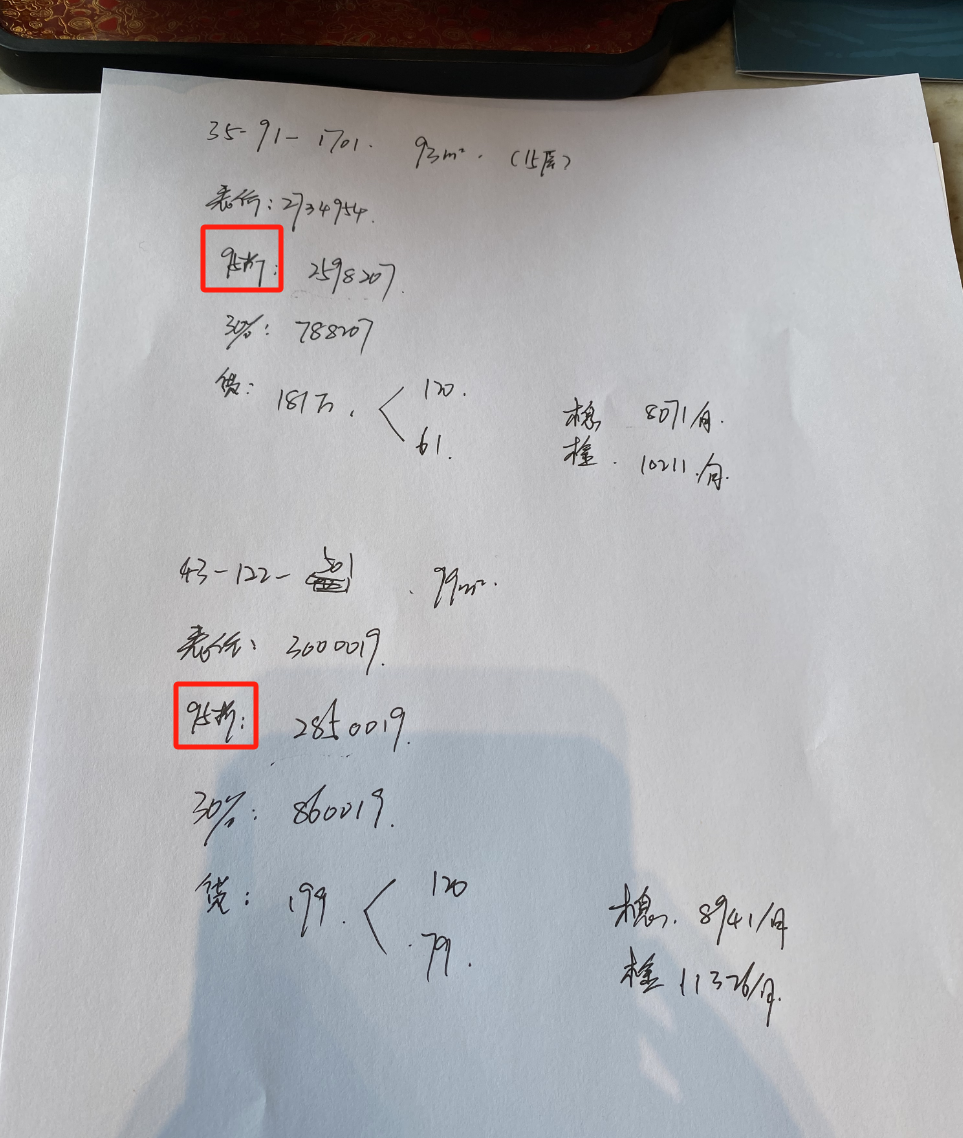 35-91-1701. 93m². (15层)
表价:2734954.
95折: 2598207.
30%: 788207
贷: 181万. 120.
61.
本息 8071/月.
本金. 10211./月.
43-122-501 . 99m².
表价: 3000019.
95折: 2850019.
30%: 860019.
贷: 199. 120
.79.
本息. 8941/月
本金 11326/月.